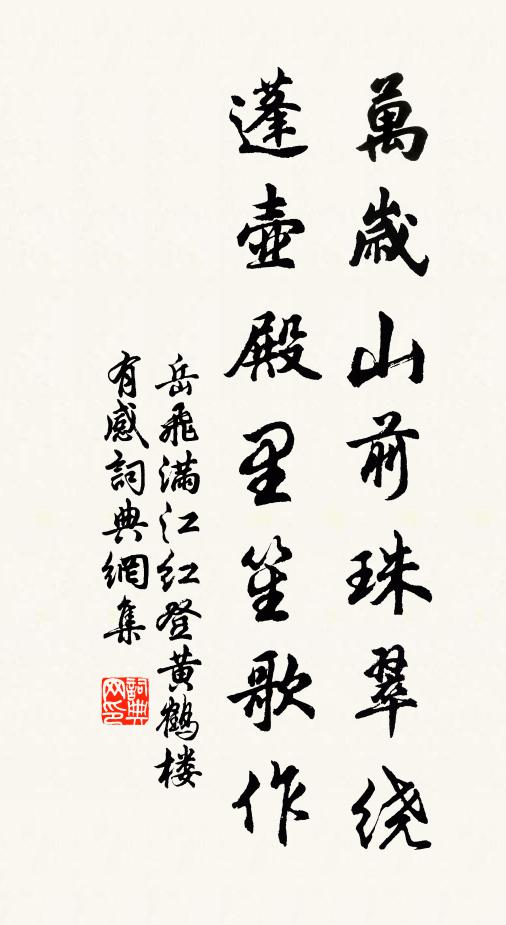 萬歲山前珠翠绕
蓬壺殿里笙歌作
岳飛滿江红登黄鶴楼
有感詞典網集
詞典
网印